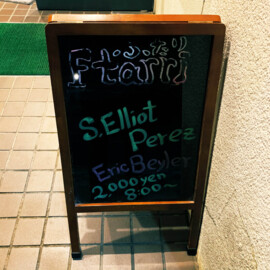 S. Elliot
Perez
Eric Beyler
2,000yen
8:00~